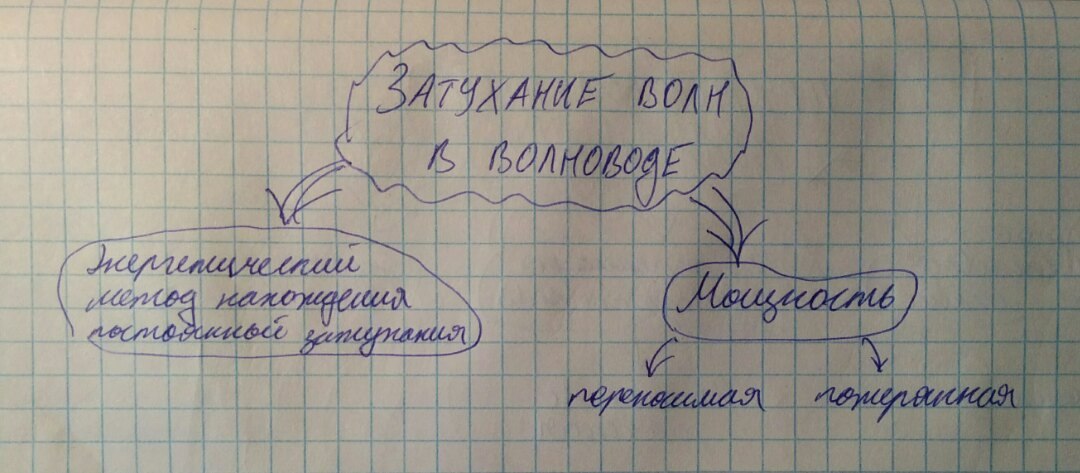 ЗАТУХАНИЕ ВОЛН
В ВОЛНОВОДЕ
Энергетический
метод нахождения
постоянной затухания
Мощность
переносимая пожеранная